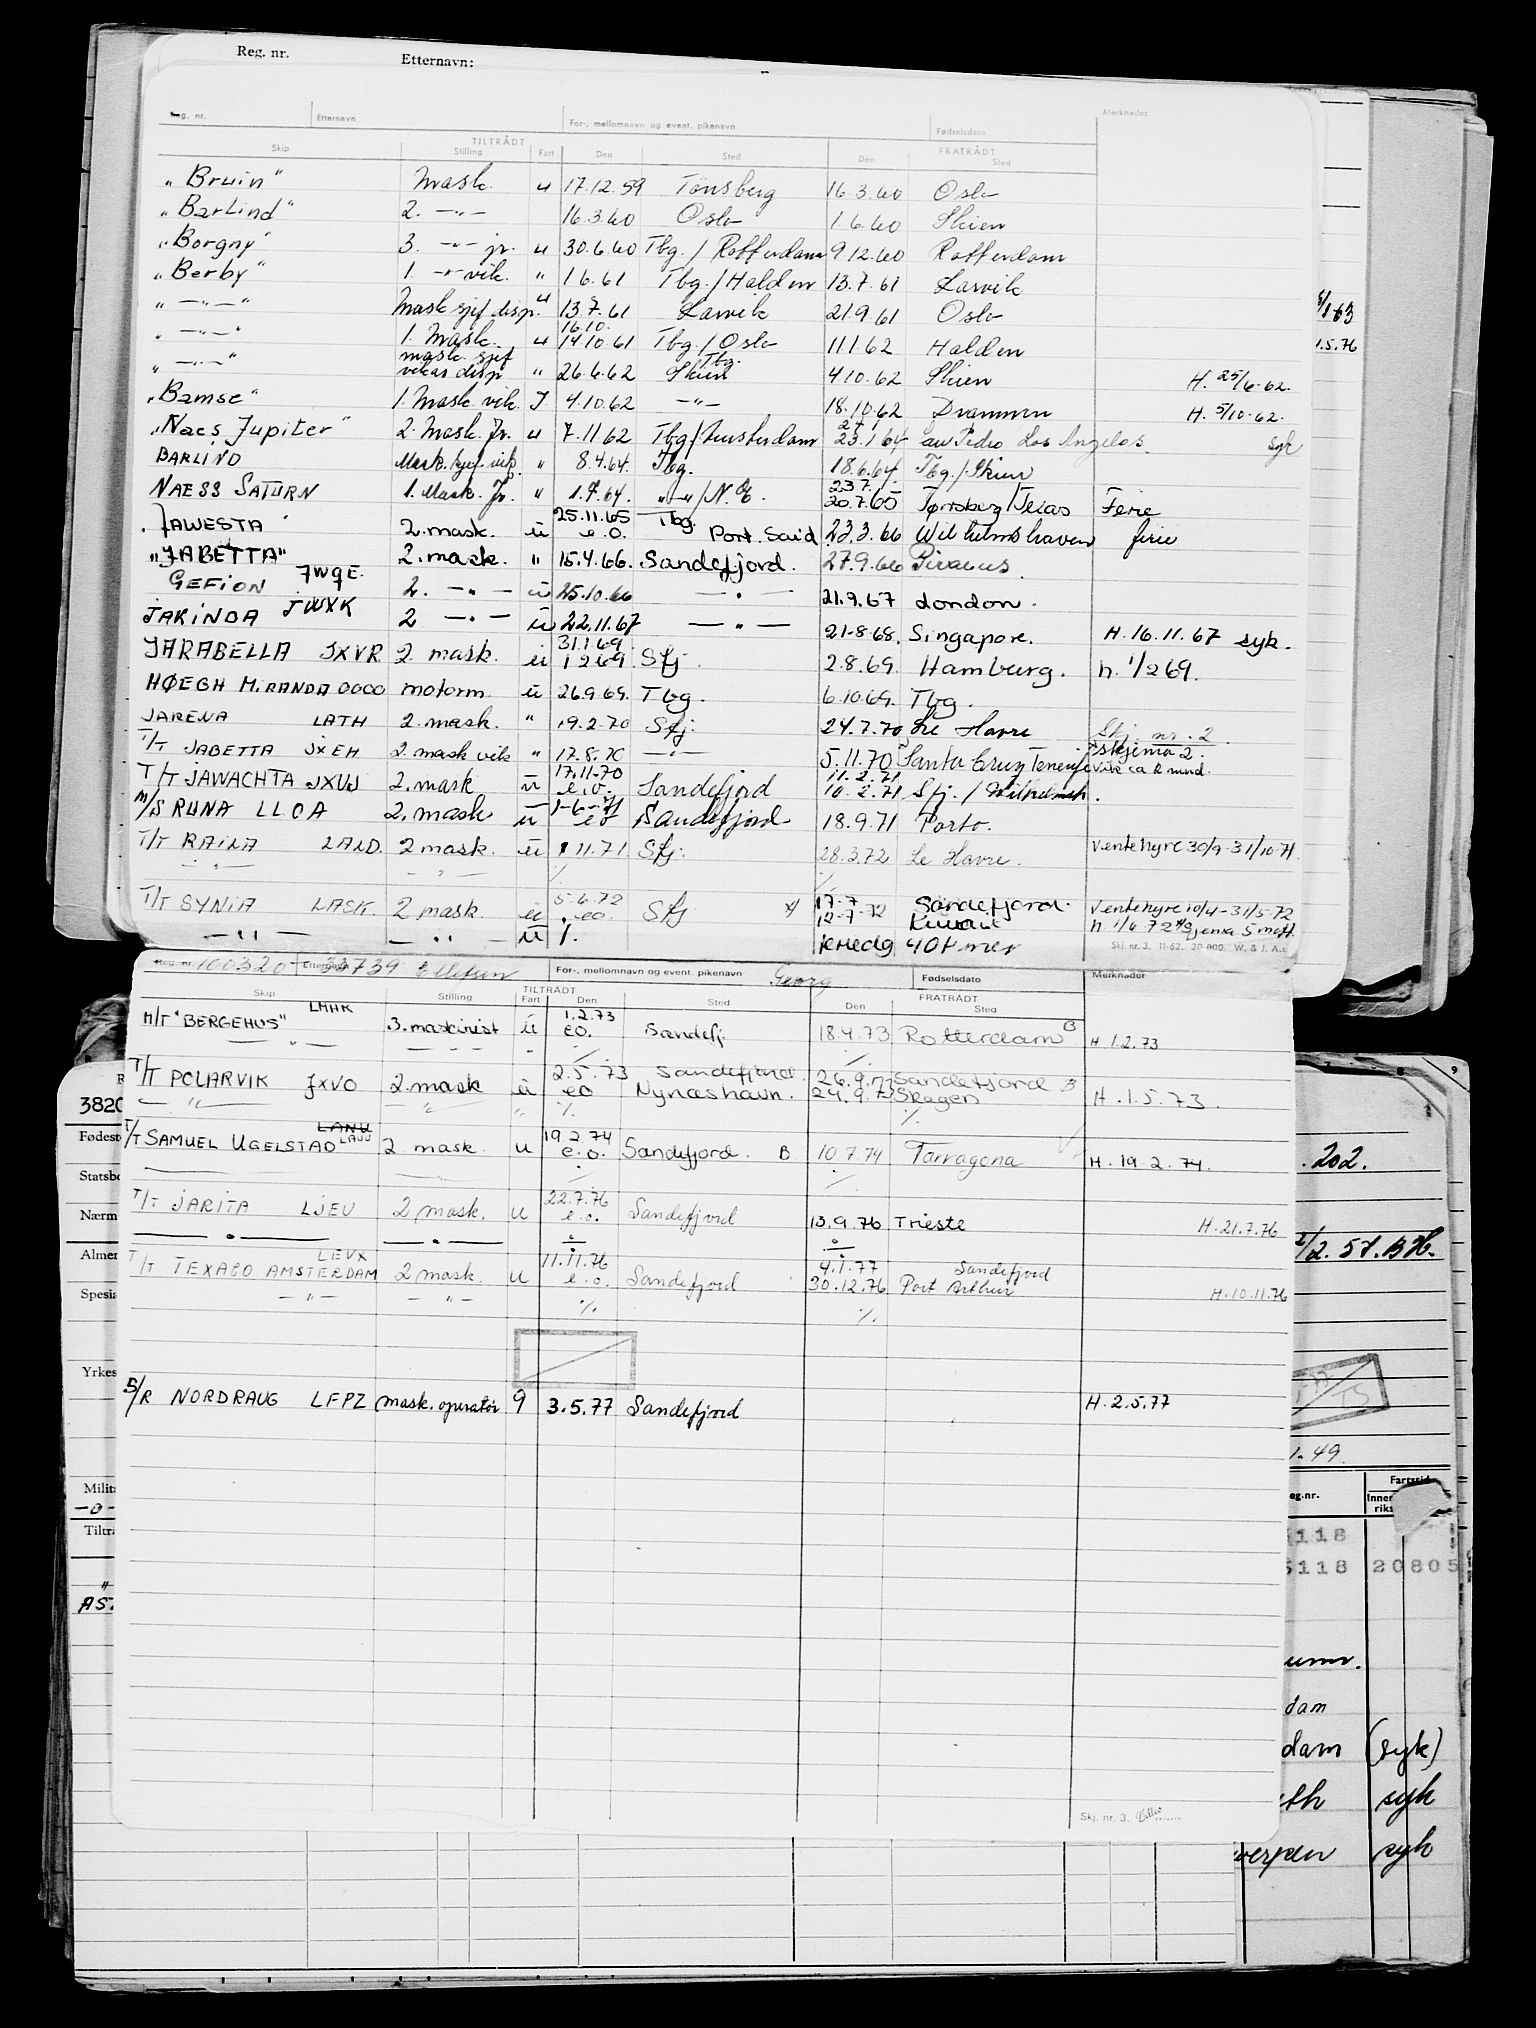 Reg. nr. Etternavn:
Reg. nr. Etternavn For-, mellomnavn og event. pikenavn Fødselsdato Merknader
TILTRÅDT FRATRÅDT
Skip Stilling Fart Den Sted Den Sted
"Bruin" Mask. u 17.12.59 Tønsberg 16.3.60 Oslo
"Barlind" 2. —"— 16.3.60 Oslo 1.6.60 Skien
"Borgny" 3. —"— jr. u 30.6.60 Tbg. / Rotterdam 9.12.60 Rotterdam
"Berby" 1. —"— vik. " 1.6.61 Tbg. / Halden 13.7.61 Larvik
" —"—" Mask sjef disp. u 13.7.61 Larvik 21.9.61 Oslo
16.10.
" —"—" 1. Mask. u 14.10.61 Tbg. / Oslo 11.1.62 Halden
mask. sjef Tbg.
" —"—" vikar disp " 26.6.62 Skien 4.10.62 Skien H. 25/6-62.
"Bamse" 1. Mask vik. I 4.10.62 —"— 18.10.62 Drammen H. 5/10-62.
"Naess Jupiter" 2. Mask. Jr. u 7.11.62 Tbg / Amsterdam 23.1.64 San Pedro Los Angelos. syk
BARLIND Mask. sjef vik. " 8.4.64. Tbg. 18.6.64. Tbg. / Skien
23.7.
NAESS SATURN 1. Mask. Jr. " 1.7.64. "—"/N.Y. 20.7.65 Tønsberg / Texas Ferie
25.11.65 Tbg.
JAWESTA 2. mask. ü e.o. Port Said 23.3.66 Wilhelmshaven ferie
"JABETTA" 2. mask. " 15.4.66. Sandefjord. 27.9.66 Piraeus
GEFION JWQE 2. —"— ü 25.10.66 —"— 21.9.67 London.
JARINDA JWXK 2 —"— ü 22.11.67 —"— 21-8-68. Singapore. H. 16.11.67 syk.
31.1.69.
JARABELLA JXVR 2. mask. ü 1 2 69 Sfj. 2.8.69. Hamburg. h. 1/2 69.
HØEGH MIRANDA OOOO motorm. ü 26.9.69. Tbg. 6.10.69. Tbg.
JARENA LATH 2. mask. " 19.2.70 Sfj. 24.7.70 Le Havre Skj. nr. 2
T/T JABETTA JXEH 2. mask vik " 17.8.70 —"— 5.11.70 Santa Cruz Teneriffe skjema 2. vik ca 2 mnd.
17.11.70 11.2.71
T/T JAWACHTA JXUW 2. mask ü e.o. Sandefjord 10.2.71 Sfj. / Wilhelmsh.
1-6-71
M/S RUNA LLOA 2. mask ü eo Sandefjord 18.9.71 Porto.
T/T RAILA LALD. 2 mask. ü 1 11.71 Sfj. 28.3.72 Le Havre. Ventehyre 30/9-31/10-71
" —"— ./. ./.
5.6.72 17.7
T/T SYNIA LASK. 2 mask. ü eo. Sfj 12-7-72 Sandefjord. Kuwait Ventehyre 10/4-31/5-72
—"— —"— ü ./. h 1/6 72 skjema 5 mott.
Skj. nr. 3. 11-62. 30 000. W. & J. A.s.
Reg. nr. 100320 Etternavn 33739 Ellefsen For-, mellomnavn og event. pikenavn Georg Fødselsdato Merknader
TILTRÅDT FRATRÅDT
Skip Stilling Fart Den Sted Den Sted
LMHK 1.2.73
M/T "BERGEHUS" 3. maskinist ü eo. Sandefj. 18.4.73 Rotterdam B H 1.2.73
—"— —"— " ./. ./.
2.5.73 Sandefjord. 26.9.73 Sandefjord B
T/T POLARVIK JXVO 2. mask ü eo Nynæshavn. 24.9.73 Skagen H.1.5.73.
—"— " " ./. ./.
LANU 19.2.74
T/T SAMUEL UGELSTAD LAUU 2 mask. u e.o. Sandefjord. B 10.7.74 Tarragona H. 19.2.74.
22.7.76
T/T JARITA LJEU 2 mask. u e.o. Sandefjord 13.9.76 Trieste H. 21.7.76
—"— —"— ./. ./.
LEVX 11.11.76 4.1.77 Sandefjord
T/T TEXACO AMSTERDAM 2 mask. u e.o. Sandefjord 30.12.76 Port Arthur H. 10.11.76
—"— —"— ./. ./.
S/R NORDRAUG LFPZ mask. operatør 9 3.5.77 Sandefjord H. 2.5.77
Skj. nr. 3.
/1-63
1.5.76
3820
Fødest
Statsbo
Nærm
Almen
Spesia
Yrkes
Milit
-0-
Tiltr
"
AS.
9
.202.
/2. 57. BH.
1-49.
Fartstid
eg.nr. Innen riks
118
5118 20805
umr.
dam
dam (syk)
th syk
werpen syk